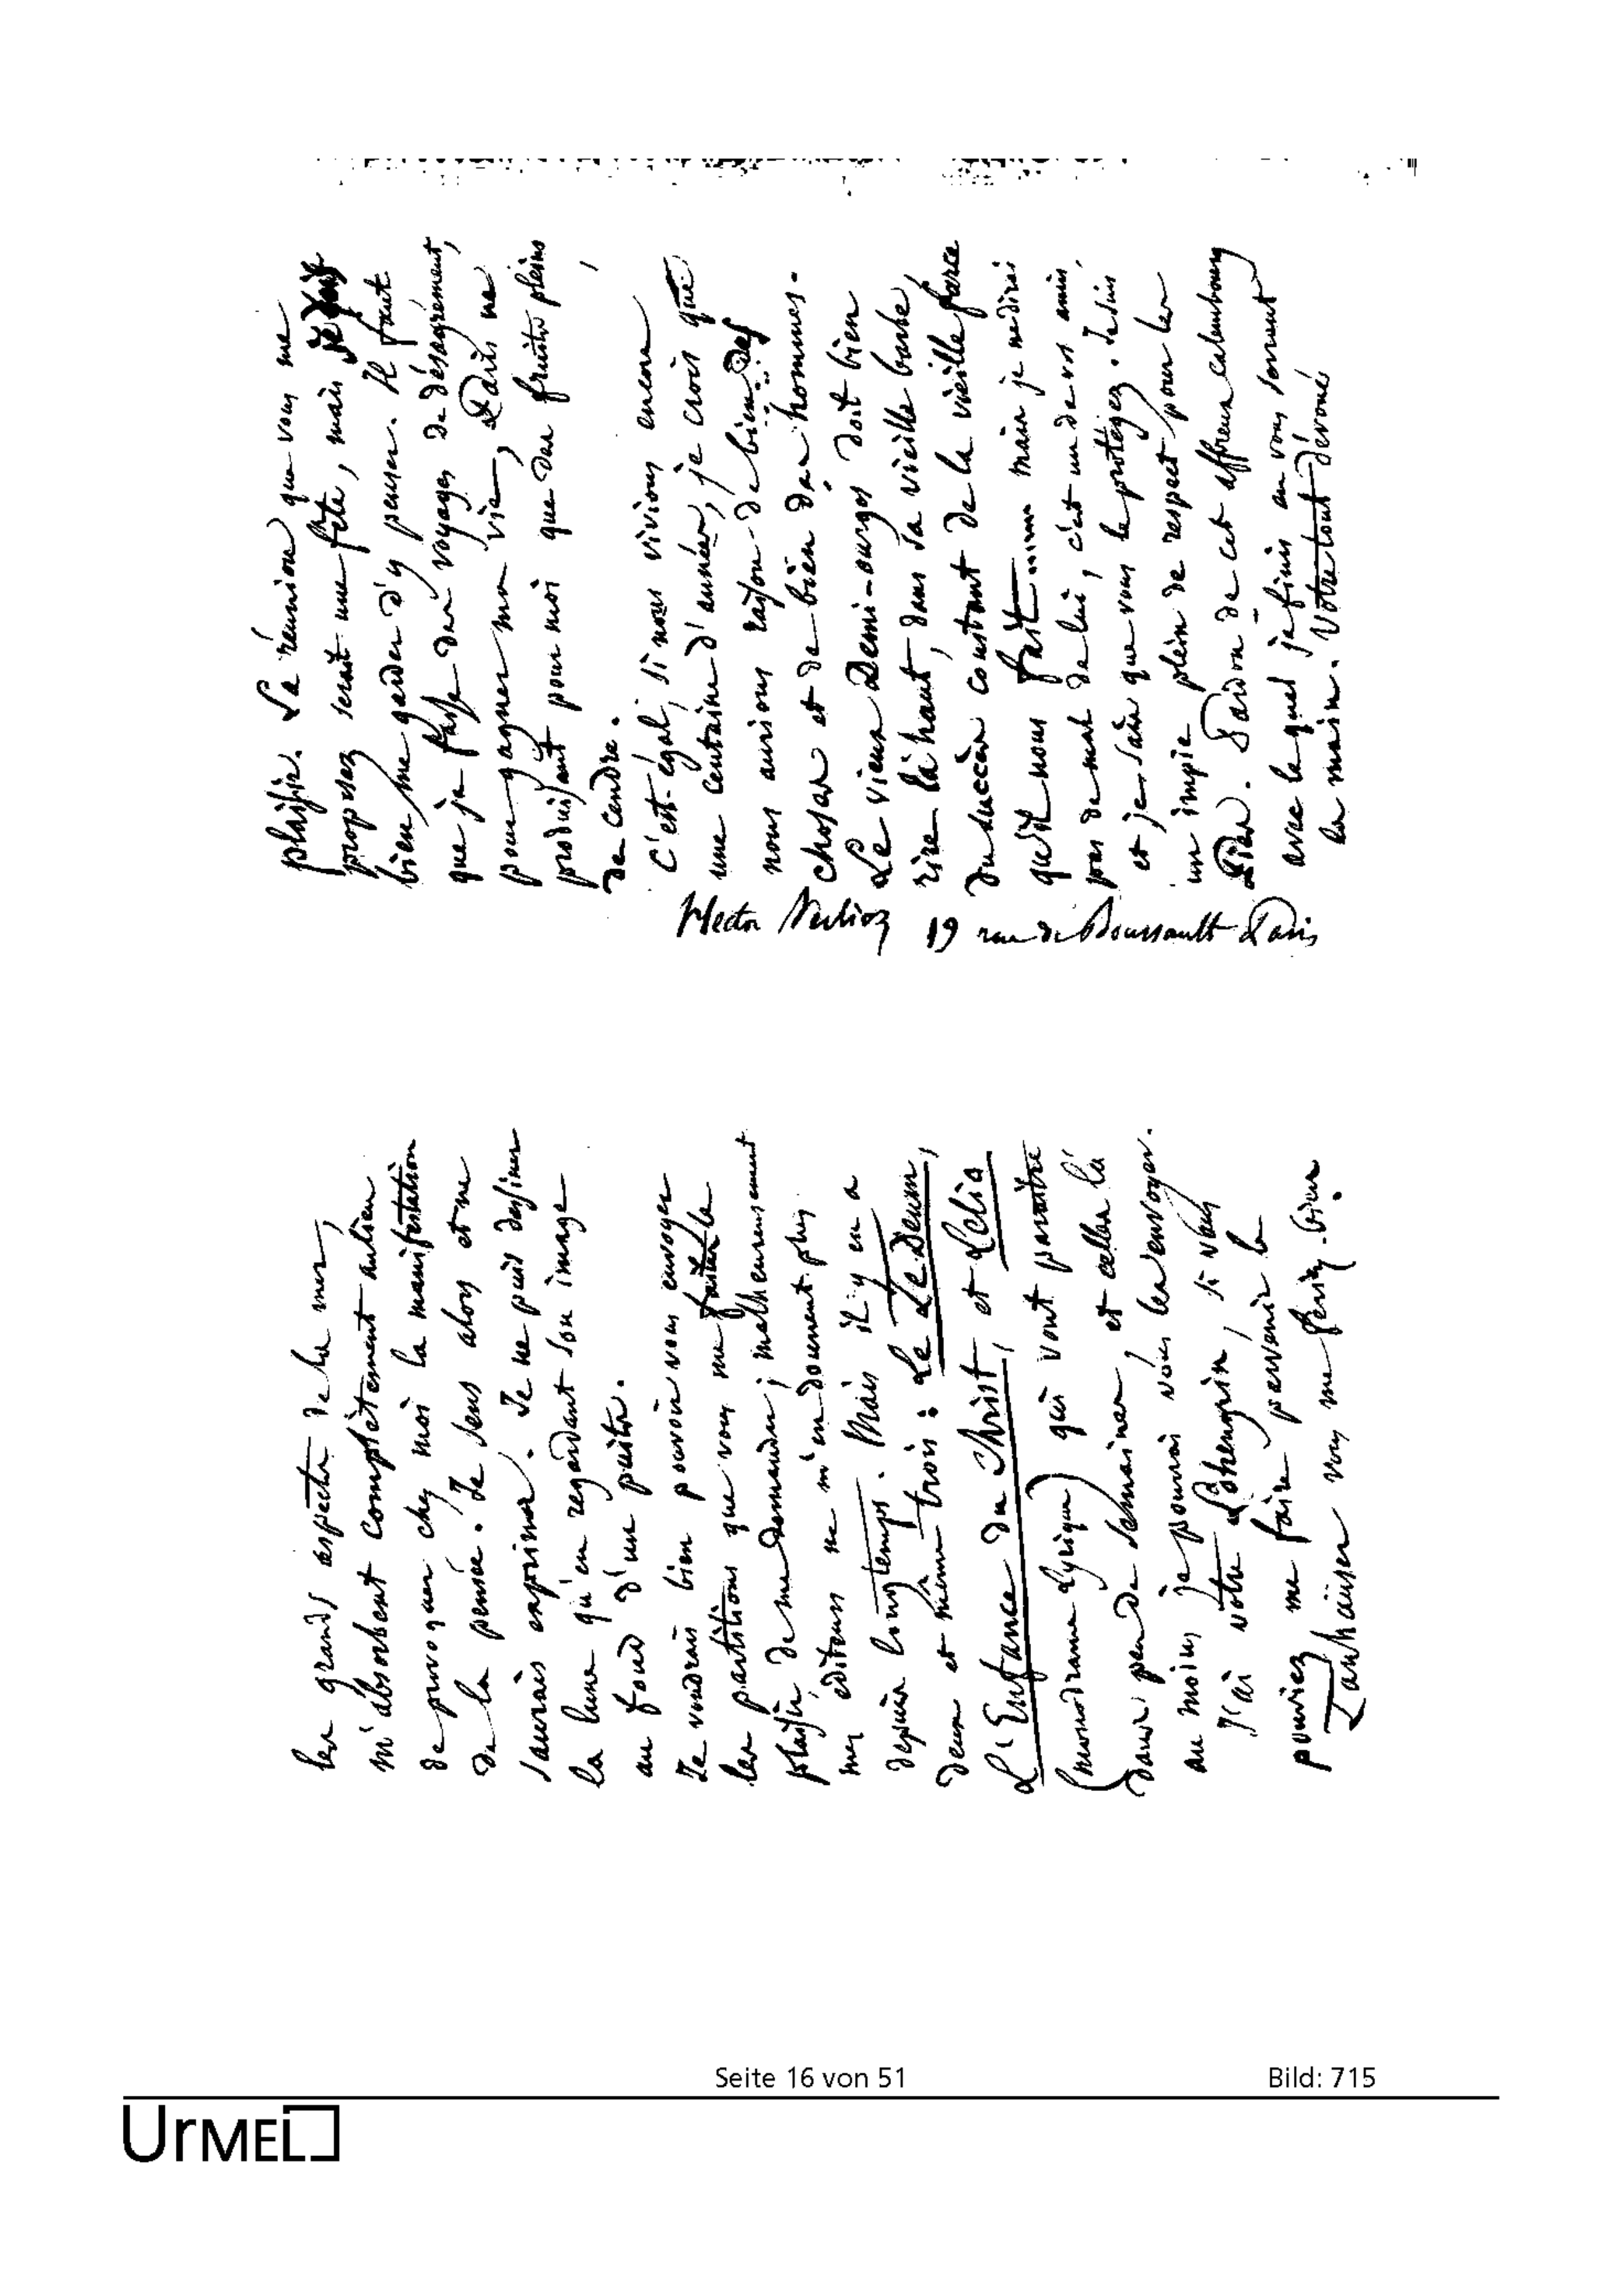 les grands aspects de la mer,
m'absorbent complètement au lieu
de provoquer chez moi la manifestation
de la pensée. Je sens alors et ne
saurais exprimer. Je ne puis dessiner
la lune qu'en regardant son image
au fond d'un puits.
Je voudrais bien pouvoir vous envoyer
les partitions que vous me faites le
plaisir de me demander; malheureusement
mes editeurs ne m'en donnent plus
depuis longtemps. Mais il y en a
deux et même trois: Le Te Deum,
L'Enfance du Christ, et Lelio
(monodrame lyrique) qui vont paraître
dans peu de semaines, et celles là
au moins je pourrai vous les envoyer.
J'ai votre Lohengrin, si vous
pouviez me faire parvenir le
Tanhaüser vous me feriez bien
plaisir. La réunion que vous me
proposez serait une fête, mais je dois
bien me garder d'y penser. Il faut
que je fasse des voyages de désagrément,
pour gagner ma vie, Paris ne
produisant pour moi que des fruits pleins
de cendre.
C'est égal, si nous vivions encore
une centaine d'années, je crois que
nous aurions raison de bien des
choses et de bien des hommes.
Le vieux Demi-ourgos doit bien
rire là haut, dans sa vieille barbe,
du succès constant de la vieille farce
qu'il nous fait..... mais je ne dirai
pas de mal de lui, c'est un de vos amis,
et je sais que vous le protégez. Je suis
un impie plein de respect pour les
Pies. Pardon de cet affreux calembourg
avec lequel je finis en vous serrant
la main. Votre tout dévoué
Hector Berlioz 19 rue de Boursault Paris
Seite 16 von 51
Bild: 715
UrMEL